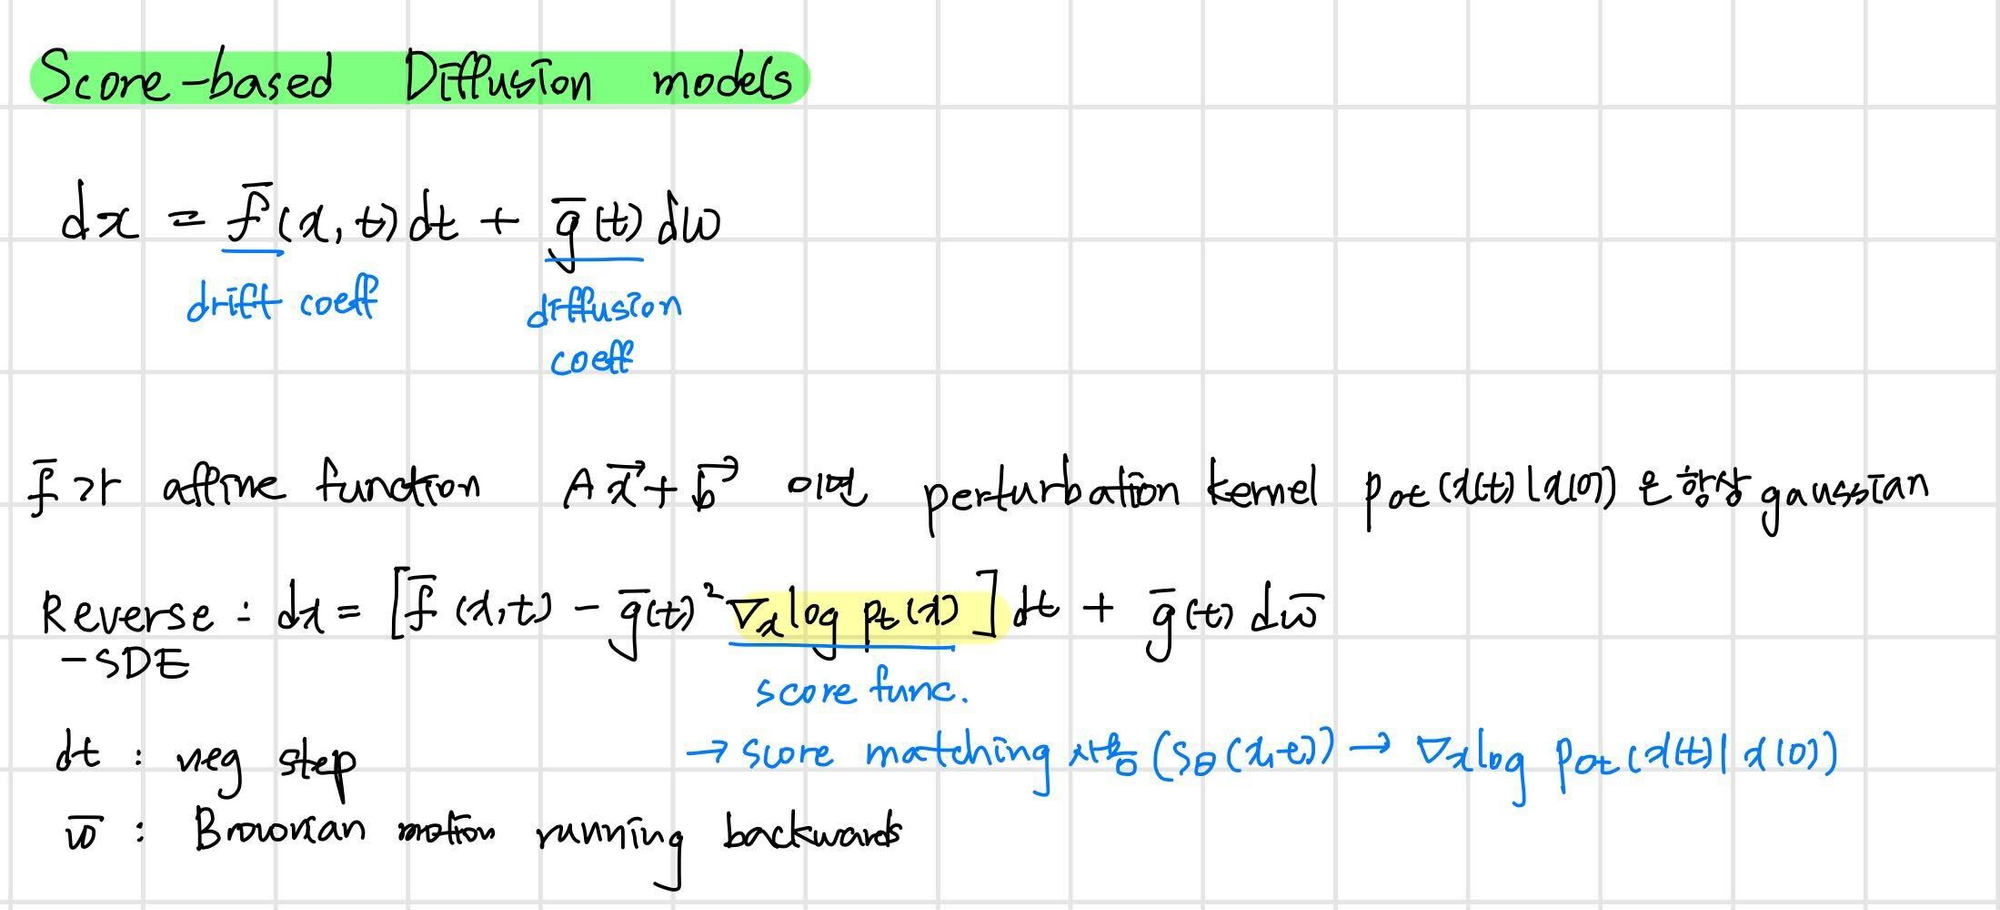 Score-based Diffusion models
dx = f̄(x,t)dt + ḡ(t)dw
drift coeff diffusion
coeff
f̄가 affine function Ax⃗+b⃗ 이면 perturbation kernel p₀ₜ(x(t)|x(0)) 은 항상 gaussian
Reverse : dx = [f̄(x,t) - ḡ(t)²∇ₓlog pₜ(x)]dt + ḡ(t)dw̄
-SDE
score func.
dt : neg step → score matching 사용(sθ(x,t)) → ∇ₓlog p₀ₜ(x(t)|x(0))
w̄ : Brownian motion running backwards